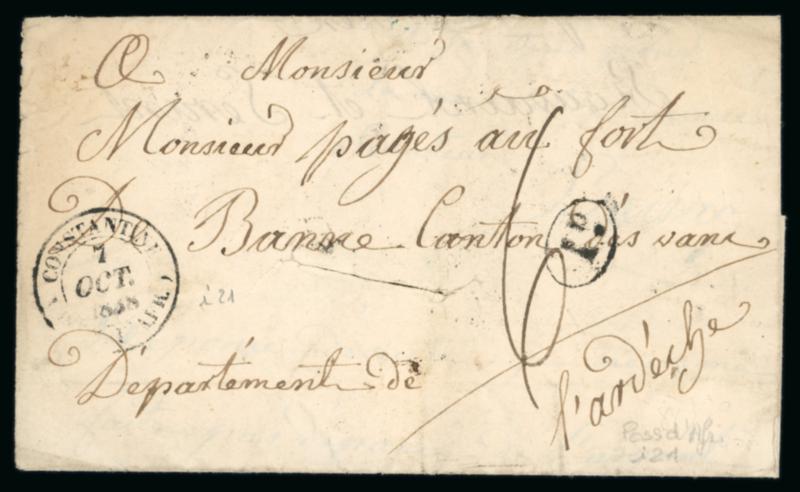 A Monsieur
Monsieur pagés au fort
De Banne Canton dés vans
Département de
l'ardéche
CONSTANTINE
7
OCT.
1838
AFR.)
P.P.
6
i 21
Poss d'Afri
i 21